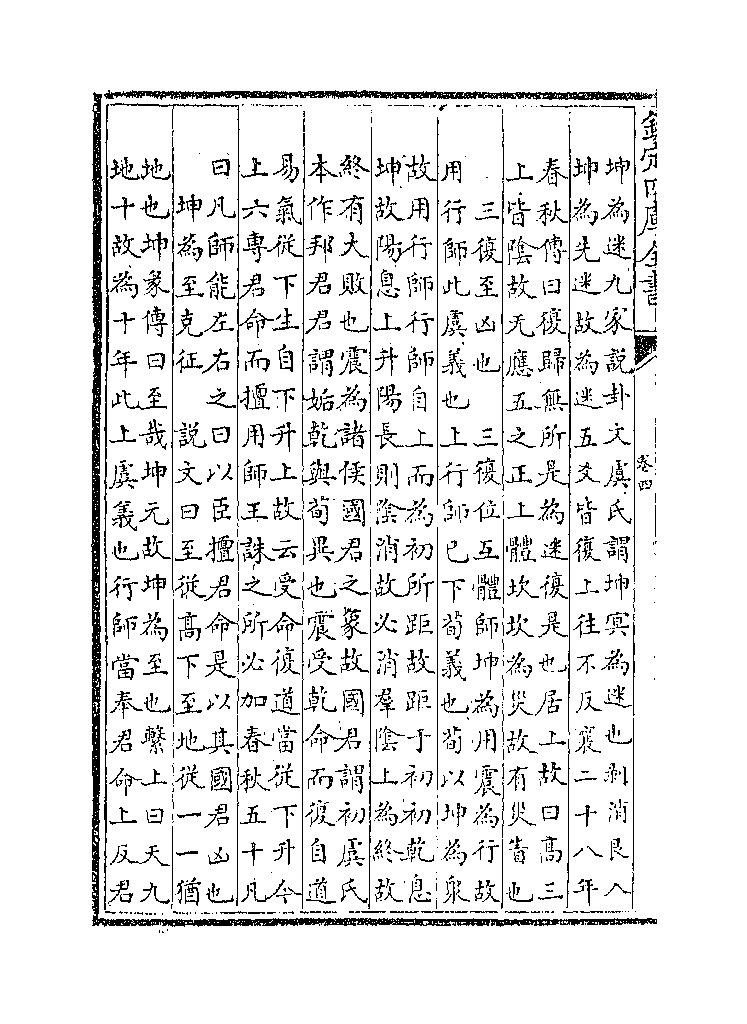 欽定四庫全書
卷四
坤為迷九家說卦文虞氏謂坤冥為迷也剥消艮入
坤為先迷故為迷五爻皆復上往不反襄二十八年
春秋傳曰復歸無所是為迷復是也居上故曰高三
上皆陰故无應五之正上體坎坎為災故有災眚也
三復至凶也　三復位互體師坤為用震為行故
用行師此虞義也　上行師已下荀義也荀以坤為衆
故用行師行師自上而為初所距故距于初初乾息
坤故陽息上升陽長則陰消故必消羣陰上為終故
終有大敗也震為諸侯國君之象故國君謂初虞氏
本作邦君君謂姤乾與荀異也震受乾命而復自道
易氣從下生自下升上故云受命復道當從下升今
上六專君命而擅用師王誅之所必加春秋五十凡
曰凡師能左右之曰以臣擅君命是以其國君凶也
坤為至克征　說文曰至從高下至地從一一猶
地也坤彖傳曰至哉坤元故坤為至也繫上曰天九
地十故為十年此上虞義也行師當奉君命上反君